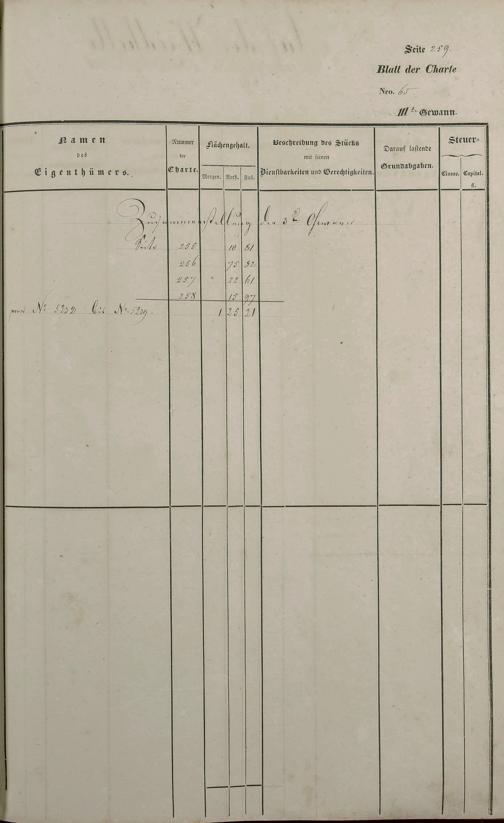 Seite 259.
Blatt der Charte
Nro. 65
III te Gewann.
Namen
des
Eigenthümers.
Nummer
der
Charte.
Flächengehalt.
Morgen. Ruth. Fuß.
Beschreibung des Stücks
mit seinen
Dienstbarkeiten und Gerechtigkeiten.
Darauf lastende
Grundabgaben.
Steuer-
Classe. Capital.
fl.
Zusammenstellung der 3 t Gewann
Seite 255 10 81
256 75 82
257 " 22 61
258 15 97
No 5232 bis No 5239. 1 25 21